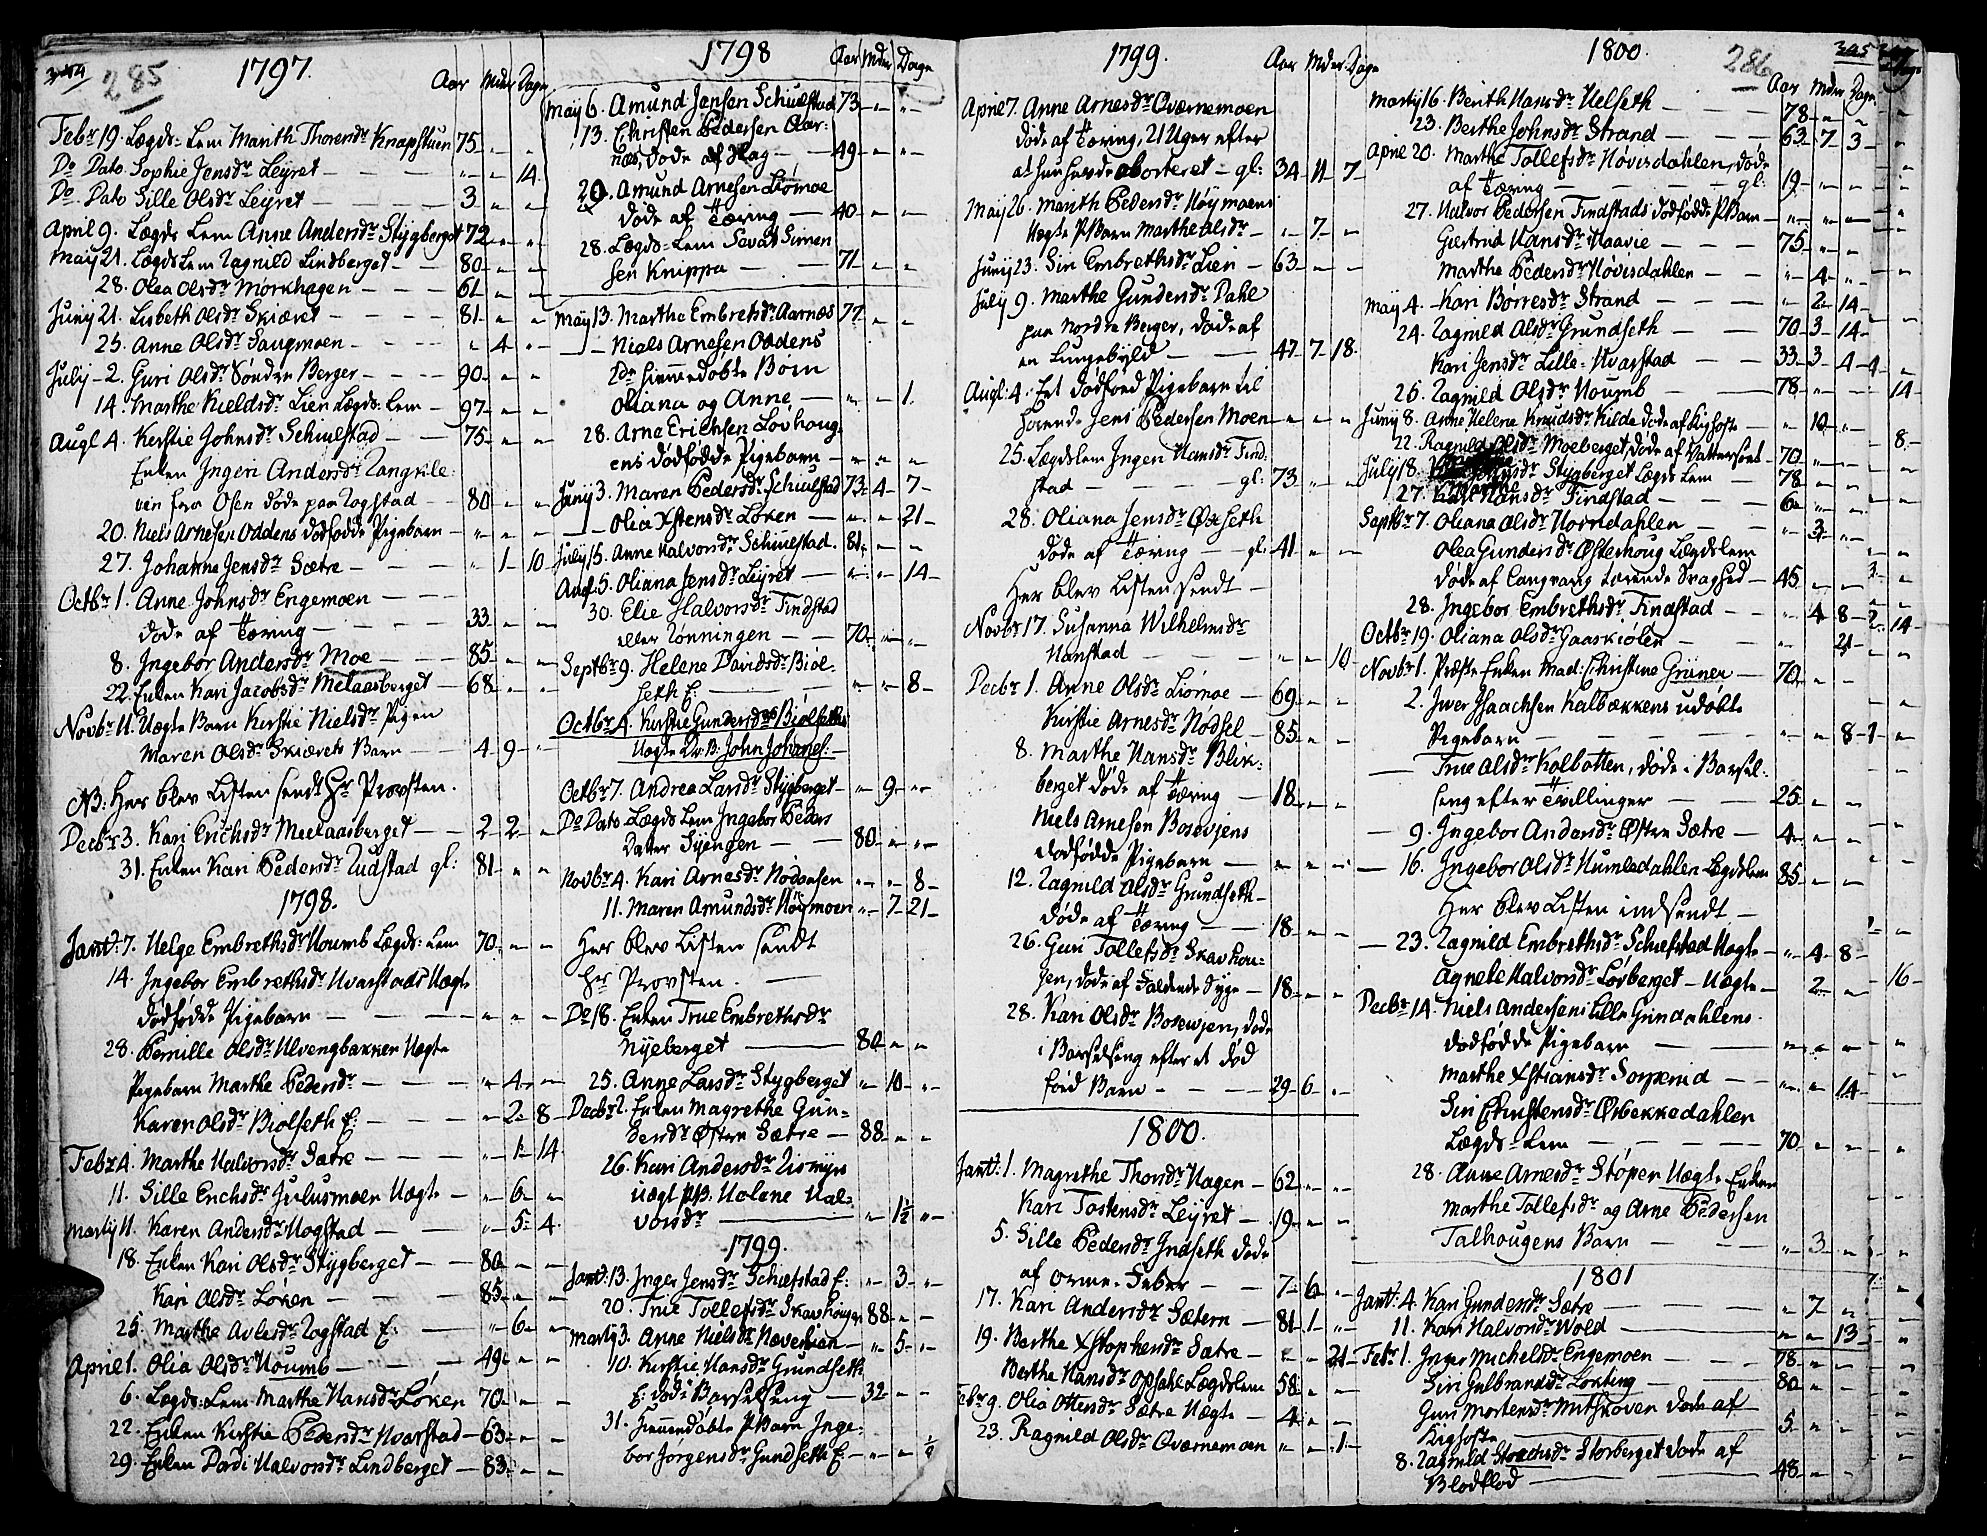 344 285
1797.
Aar Mdr Dage
Febr 19. Lægds-Lem Marith Thorendr Knapstuen 75 - -
Do Dato Sophie Jensdr Leyret - - 14
Do Dato Sille Olsdr Leyret 3 - -
April 9. Lægds Lem Anne Andersdr Stygberget 72 - -
May 21. Lægdslem Ragnild Lindberget 80 - -
28. Olea Olsdr Morkhagen 61 - -
Junij 21. Lisbeth Olsdr Skiæret 81 - -
25. Anne Olsdr Saugmoen - 4 -
July 2. Guri Olsdr Sondre Berger 90 - -
14. Marthe Kieldsdr Lien Lægds-Lem 97 - -
Augl 4. Kerstie Johnsdr Schiulstad 75 - -
Enken Ingeri Andersdr
Osen døde paa Rogstad 80 - -
20. Niels Arnesen Oddens dødfødde Pigebarn - - -
27. Johanne Jensdr Sætre - 1 10
Octbr 1. Anne Johnsdr Engemoen
døde af Tæring 33 - -
8. Ingebor Andersdr Moe 85 - -
22. Enken Kari Jacobsdr Melaasberget 68 - -
Novbr 11. Uægte Barn Kirstie Nielsdr Pigen
Maren Olsdr Skiærets Barn 4 9 -
NB: Her blev Listen sendt Hr Provsten.
Decbr 3. Kari Erichsdr Meelaasberget 2 2 -
31. Enken Kari Pedersdr Rudstad gl: 81 - -
1798.
Jan: 7. Helge Embrethsdr Houmb Lægds-Lem 70 - -
14. Ingebor Embrethsdr Hvarstads Uægte
dødfødde Pigebarn - - -
28. Pernille Olsdr Ulvengbakken Uægte
Pigebarn Marthe Pedersdr - 4 -
Karen Olsdr Biolseth E: - 2 8
Febr 4. Marthe Halvorsdr Sætre - 1 14
11. Sille Erichsdr Julusmoen Uægte - 6 -
Martij 11. Karen Andersdr Hogstad - 5 4
18. Enken Kari Olsdr Stygberget 80 - -
Kari Olsdr Løken 85 - -
25. Marthe Avlesdr Rogstad E: - 6 -
April 1. Olia Olsdr Houmb 49 - -
6. Lægds-Lem Marthe Hansdr Løken 70 - -
22. Enken Kirstie Pedersdr Hvarstad 63 - -
29. Enken Dordi Halvorsdr Lindberget 83 - -
1798
Aar Mdr Dage
May 6. Amund Jensen Schiulstad 73 - -
13. Christen Pedersen Aar:
næs, døde af Slag 49 - -
20. Amund Arnesen Liømoe
døde af Tæring 40 - -
28. Lægds-Lem Savat Simen
sen Knippa 71 - -
May 13. Marthe Embretsdr Aarnæs 77 - -
Niels Arnesen Oddens
2de hiemmedøbte Børn
Oliana og Anne - - 1
28. Arne Erichsen Lovhoug
ens dødfødde Pigebarn - - -
Junij 3. Maren Pedersdr Schiulstad 73 4 7
Olia Xstensdr Løken - - 21
July 15. Anne Halvorsdr Schiulstad 81 - -
Augl 5. Oliana Jensdr Leyret - - 14
30. Elie Halvorsdr Findstad
eller Rønningen 70 - -
Septbr 9. Helene Davidsdr Biol
seth E: - - 8
Octbr 4. Kirstie Gundersdr Biolseths
Uægte Dr.B: John Johans:
Octbr 7. Andrea Larsdr Stygberget - 9 -
Do Dato Lægds Lem Ingebor Peders
Dater Syengen 80 - -
Novbr 4. Kari Arnesdr Nodensen - - 8
11. Maren Amundsdr Høymoen - 7 21
Her blev Listen sendt
Hr Provsten.
Do 18. Enken True Embrethsdr
Nyeberget 80 - -
25. Anne Larsdr Stygberget - 10 -
Decbr 2. Enken Magrethe Gun-
dersdr Østre Sætre 88 - -
26. Kari Andersdr Riismyrs
Uægt P.B: Halene Hal-
vorsdr - 1½ -
1799.
Jan: 13. Inger Jensdr Schiefstad E: - 3 -
20. True Tollefsdr Skavhougen 88 - -
Martij 3. Anne Nielsdr Noverlien - 5 -
10. Kirstie Hansdr Grundseth
E: død i Barselseng 32 - -
31. Hiemmedøbte P.Barn Inge-
bor Jørgensdr Gundseth E: - - ½
1799.
Aar Mdr Dage
April 7. Anne Arnesdr Qværnemoen
døde af Tæring, 21 Uger efter
at hun havde aborteret - gl: 34 11 7
May 26. Marith Pedersdr Høymoens
Uægte P.Barn Marthe Olsdr - 7 -
Junij 23. Siri Embrethsdr Lien 63 - -
July 9. Marthe Gundersdr Dahl
paa Nordre Berger, døde af
en Lungebyld 47 7 18
Augl: 4. Eet dødfød Pigebarn til
hørende Jens Pedersen Moen - - -
25. Lægdslem Ingeri Hansdr Find
stad gl: 73 - -
28. Oliana Jensdr Øxseth
døde af Tæring gl: 41 - -
Her blev Listen sendt
Novbr 17. Susanna Wilhelmsdr
Hanstad - - 10
Decbr 1. Anne Olsdr Liømoe 69 - -
Kirstie Arnesdr Nødsel 85 - -
8. Marthe Hansdr Blik-
berget døde af Tæring 18 - -
Niels Arnesen Bosevjens
dødfødde Pigebarn - - -
12. Ragnild Olsdr Grundseth
døde af Tæring 18 - -
26. Guri Tollefsdr Skavhou-
gen, døde af Faldende Syge 18 - -
28. Kari Olsdr Bosevjen, døde
i Barselseng efter et død
fød Barn 29 6 -
1800.
Jan: 1. Magrethe Thorsdr Hagen 62 - -
Kari Tostensdr Leyret 19 - -
5. Sille Pedersdr Indseth døde
af Orme-Feber 7 6 -
17. Kari Andersdr Sætern 81 1 -
19. Berthe Xstophersdr Sætre - - 21
Berthe Hansdr Opsahl Lægdslem 58 - -
Febr 9. Olia Ottersdr Sætre Uægte 4 - -
23. Ragnild Olsdr Qværnemoen - - 1
1800.
286 345
Aar Mdr Dage
Martij 16. Berith Hansdr Helseth 78 - -
23. Berthe Johnsdr Strand 63 7 3
April 20. Marthe Tollefsdr Høvisdahlen, døde
af Tæring gl: 19 - -
27. Halvor Pedersen Findstads dødfødde P.Barn - - -
Giertrud Hansdr Haavie 75 - -
Marthe Pedersdr Høvisdahlen - 4 -
May 4. Kari Børresdr Strand - 2 14
24. Ragnild Olsdr Grundseth 70 3 14
Kari Jensdr Lille-Hvarstad 33 3 4
26. Ragnild Olsdr Houmb 78 - -
Junij 8. Anne Helene Knudsdr Kilde døde af Kighoste - 10 -
22. Ragnild Olsdr Moeberget, døde af Vattersoet 70 - -
July 18. Stygberget Lægds Lem 78 - -
27. Kari Hansdr Findstad 6 - -
Septbr 7. Oliana Olsdr Hovredahlen - 3 -
Olea Gundersdr Østerhoug Lægdslem
døde af Langvarig tærende Svaghed 45 - -
28. Ingebor Embrethsdr Findstad - 4 8
Octbr 19. Oliana Olsdr Gaaskiølen - 21
Novbr 1. Præste Enken Mad: Christine Grüner 70 - -
2. Iwer Isaachsen Kalbækkens udøbte
Pigebarn - - 8
True Olsdr Kolbotten, døde i Barsel:
seng efter Tvillinger 25 - -
9. Ingebor Andersdr Østre Sætre 4 - -
16. Ingebor Olsdr Humledahlen Lægdslem 85 - -
Her blev Listen indsendt
23. Ragnild Embrethsdr Schiefstad Uægte - 4 8
Agnete Halvorsdr Løvberget Uægte - 2 -
Decbr 14. Niels Andersens Lille Grindahlens
dødfødde Pigebarn - - -
Marthe Xstiansdr Sorknid - - 14
Siri Christensdr Ørbekkedahlen
Lægds-Lem 70 - -
28. Anne Arnesdr Støpen Uægte Enken
Marthe Tollefsdr og Arne Pedersen
Talhougens Barn - 3 -
1801
Jan: 4. Kari Gundersdr Sætre - 7 -
11. Kari Halvorsdr Wold - - 13
Febr 1. Inger Michelsdr Engemoen 78 - -
Siri Gulbrandsdr Løkting 80 - -
Guri Mortensdr Mitskoven døde af
Kighoste 5 - -
8. Ragnild Storberget døde af
Blodflod 48 - -